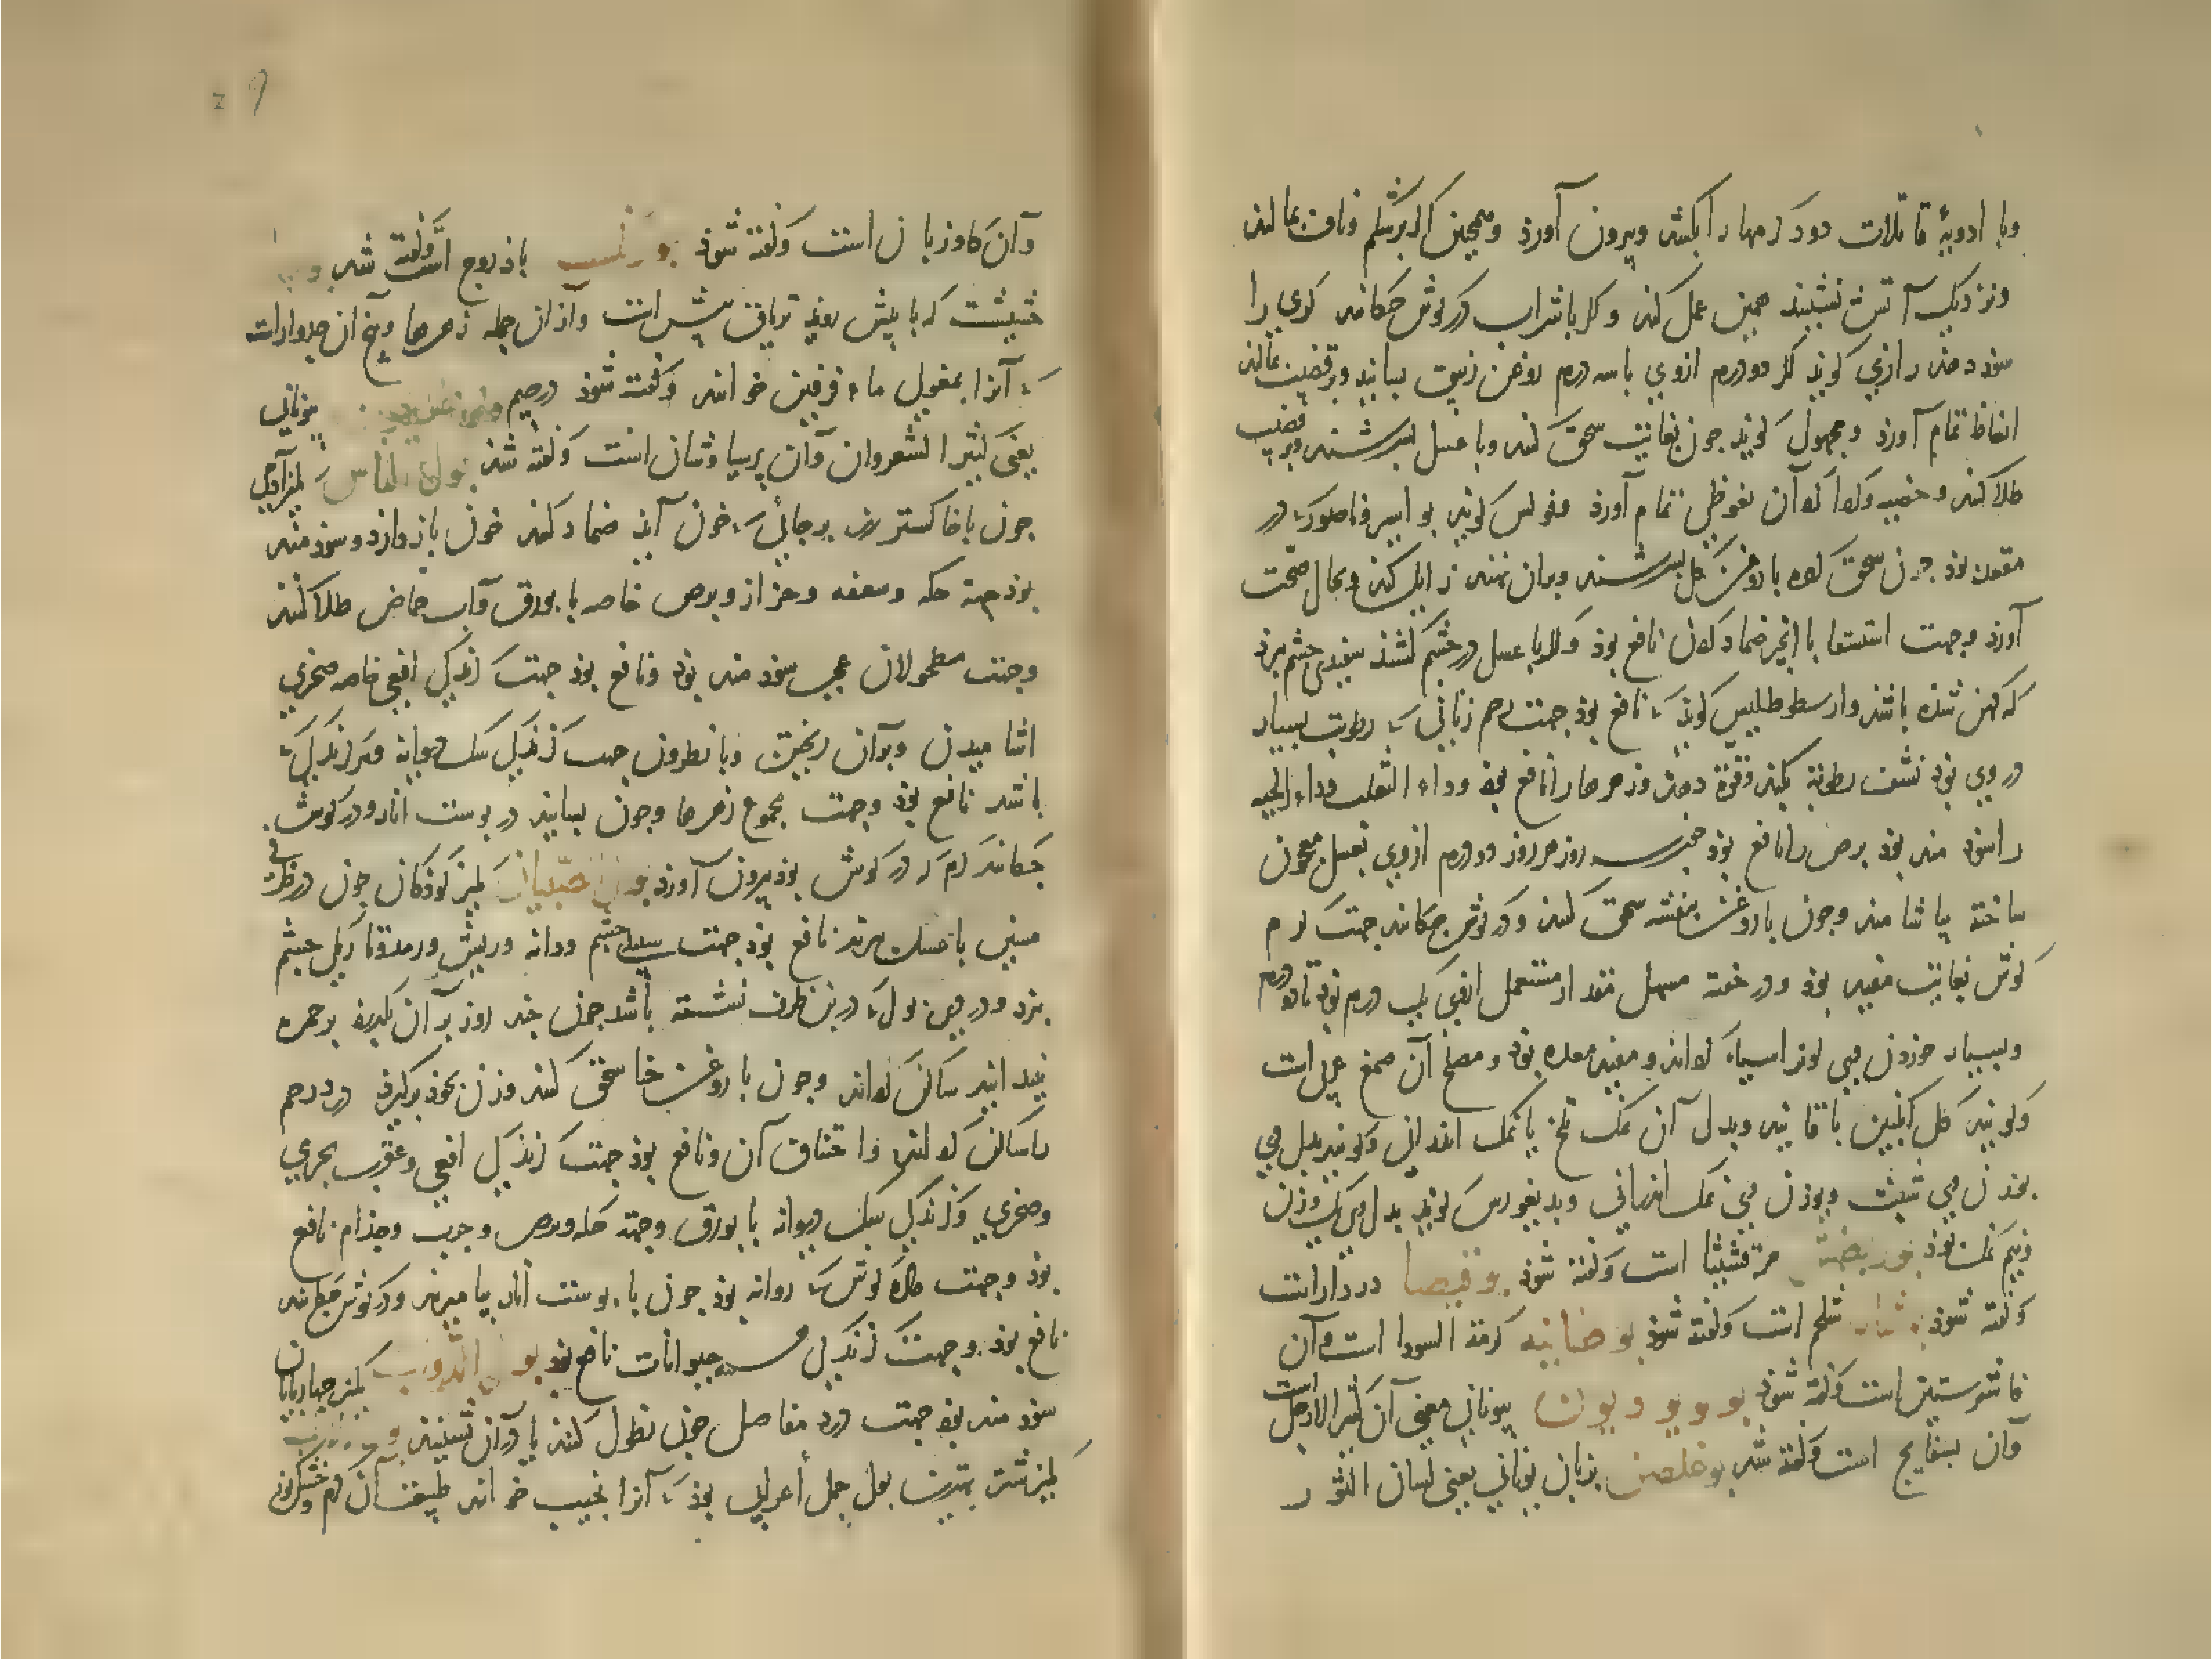 وبا ادویهٔ قاتلات دود کرمها را بکشد وبیرون آورد وهمچنین اکر برشکم وناف بمالند
ونزدیک آتش نشینند همین عمل کند وکر با شراب در کوش چکانند کری را
سودمند رازی کوید اکر دو درم ازوی با سه درم روغن زنبق بسایند وبر قضیب بمالند
انعاظ تمام آورد ومجهول کوید چون بغایت سحق کنند وبا عسل بسرشند وبر قضیب
طلا کنند آن نعوظی تمام آورد کوید بواسیر وناصور در
مقعد بود چون سحق کرده با روغن کل بسرشند وبران نهند زایل کند وبحال صحت
آورد وجهت استسقا با انجیر ضماد کردن نافع بود وکر با عسل در چشم کشند سفیدی چشم ببرد
که کهن شده باشد وارسطوطالیس کوید نافع بود جهت رحم زنانی که رطوبت بسیار
در وی بود نشف رطوبت بکند وزهرها را نافع بود وداء الثعلب وداء الحیه
را سود مند بود برص را نافع بود روز هر روز دو درم ازوی بعسل معجون
ساخته بیاشامند وچون با روغن بنفشه سحق کنند ودر کوش چکانند جهت کرم
کوش بغایت مفید بود ودر حقنه مسهل مقدار مستعمل ازوی یک درم بود تا دو درم
وبسیار خوردن وی لون را سیاه کرداند ومفسد معده بود ومصلح آن صمغ عربی است
وکویند کل انکبین با قاقیا وبدل آن نمک تلخ یا نمک اندرانی وکویند بدل وی
بوزن وی شبث وبوزن وی نمک اندرانی کوید بدل وی یک وزن
ونیم نمک بود مرقشیثا است وکفته شود بوقیصا دردار است
وکفته شود شلجم است وکفته شود بوطانیه کرمة السودا است وآن
فاشرستین است وکفته شود بولوبودیون بیونانی معنی آن کثیر الارجل است
وآن بسفایج است وکفته شد بوغلصن بزبان یونانی یعنی لسان الثور
وآن کاوزبان است وکفته شود بورنب باذروج است وکفته شد
خبیثست که با بیش روید تریاق بیش است وآن از جمله زهرها وبیخ آن جدوار است
که آنرا بمغولی ماء فرفین خوانند وکفته شود در جیم بیونانی
یعنی کثیر الشعر وآن پرسیاوشان است وکفته شد بول الناس کمیز آدمی
چون با خاکستر رز بر جائی که خون آید ضماد کنند خون باز دارد وسودمند
بود جهت حکه وسعفه وحزاز وبرص خاصه با بورق وآب حماض طلا کنند
وجهت مطحولان عجب سودمند بود ونافع بود جهت کزندکی افعی خاصه صخری
اشامیدن وبرآن ریختن وبا نطرون جهت کزندکی سک دیوانه وهر کزندکی که
باشد نافع بود وجهت مجموع زهرها وچون بسایند در پوست انار ودر کوش
چکانند کرم که در کوش بود بیرون آورد بول الصبیان کمیز کودکان چون در ظرف
مسین با عسل بپزند نافع بود جهت سپیدی چشم ودانه وریش ورمد وتاریکی چشم
ببرد ودردی بول که در بن ظرف نشسته باشد چون چند روز برآن بکذرد بر حمره
بیندایند ساکن کرداند وچون با روغن حنا سحق کنند وزن بخود برکیرد درد رحم
را ساکن کرداند واختناق آن ونافع بود جهت کزندکی افعی وعقرب بحری
وصخری وکزندکی سک دیوانه با بورق وجهت حکه وبرص وجرب وجذام نافع
بود وجهت مادّه کوش که روانه بود چون با پوست انار بیامیزند ودر کوش چکانند
نافع بود وجهت کزندکی همه حیوانات نافع بود بول الدواب کمیز چهارپایان
سود مند بود جهت درد مفاصل چون نطول کنند یا در آن نشینند
کمیز شتر بهترین بول جمل اعرابی بود که آنرا نجیب خوانند طبیعت آن کرم وخشک بود